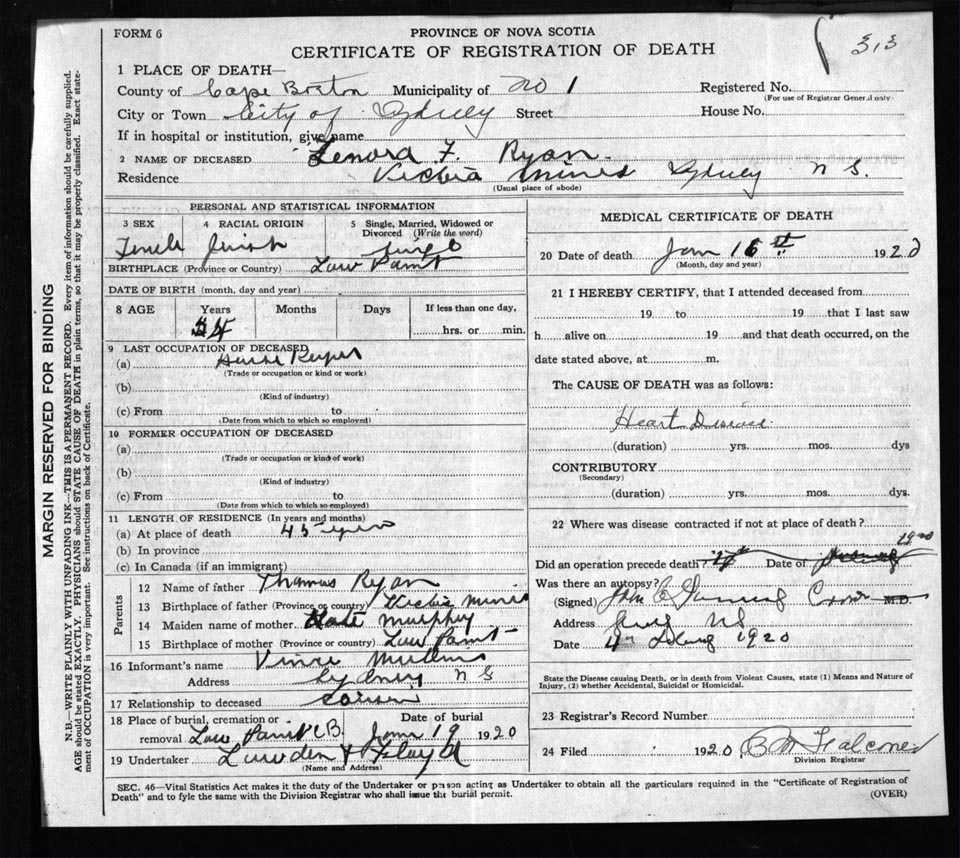 FORM 6
PROVINCE OF NOVA SCOTIA
CERTIFICATE OF REGISTRATION OF DEATH
313
1 PLACE OF DEATH—
County of Cape Breton Municipality of No 1 Registered No.
(For use of Registrar General only)
City or Town City of Sydney Street House No.
If in hospital or institution, give name
2 NAME OF DECEASED Lenora F. Ryan
Residence Victoria Mines Sydney N S.
(Usual place of abode)
MARGIN RESERVED FOR BINDING
N.B.—WRITE PLAINLY WITH UNFADING INK—THIS IS A PERMANENT RECORD. Every item of information should be carefully supplied.
AGE should be stated EXACTLY. PHYSICIANS should STATE CAUSE OF DEATH in plain terms, so that it may be properly classified. Exact state-
ment of OCCUPATION is very important. See instructions on back of Certificate.
PERSONAL AND STATISTICAL INFORMATION
3 SEX 4 RACIAL ORIGIN 5 Single, Married, Widowed or
Divorced (Write the word)
Female Irish Single
BIRTHPLACE (Province or Country) Low Point
DATE OF BIRTH (month, day and year)
8 AGE Years Months Days If less than one day,
hrs. or min.
9 LAST OCCUPATION OF DECEASED
(a) House Keeper
(Trade or occupation or kind or work)
(b)
(Kind of industry)
(c) From to
(Date from which to which so employed)
10 FORMER OCCUPATION OF DECEASED
(a)
(Trade or occupation or kind of work)
(b)
(Kind of industry)
(c) From to
(Date from which to which so employed)
11 LENGTH OF RESIDENCE (In years and months)
(a) At place of death 45 years
(b) In province
(c) In Canada (if an immigrant)
Parents
12 Name of father Thomas Ryan
13 Birthplace of father (Province or country) Victoria Mines
14 Maiden name of mother Kate Murphy
15 Birthplace of mother (Province or country) Low Point
16 Informant's name Vince Mullins
Address Sydney N S
17 Relationship to deceased Cousin
18 Place of burial, cremation or Date of burial
removal Low Point C B. Jan 19 1920
19 Undertaker Lowden &
(Name and Address)
MEDICAL CERTIFICATE OF DEATH
20 Date of death Jan 16 1920
(Month, day and year)
21 I HEREBY CERTIFY, that I attended deceased from
19 to 19 that I last saw
h alive on 19 and that death occurred, on the
date stated above, at m.
The CAUSE OF DEATH was as follows:
Heart Disease
(duration) yrs. mos. dys
CONTRIBUTORY
(Secondary)
(duration) yrs. mos. dys.
22 Where was disease contracted if not at place of death?
1920
Did an operation precede death? Date of
Was there an autopsy?
(Signed) John C M.D.
Address N S
Date 1920
State the Disease causing Death, or in death from Violent Causes, state (1) Means and Nature of
Injury, (2) whether Accidental, Suicidal or Homicidal.
23 Registrar's Record Number
24 Filed 1920 Falconer
Division Registrar
SEC. 46—Vital Statistics Act makes it the duty of the Undertaker or person acting as Undertaker to obtain all the particulars required in the "Certificate of Registration of
Death" and to fyle the same with the Division Registrar who shall issue the burial permit.
(OVER)